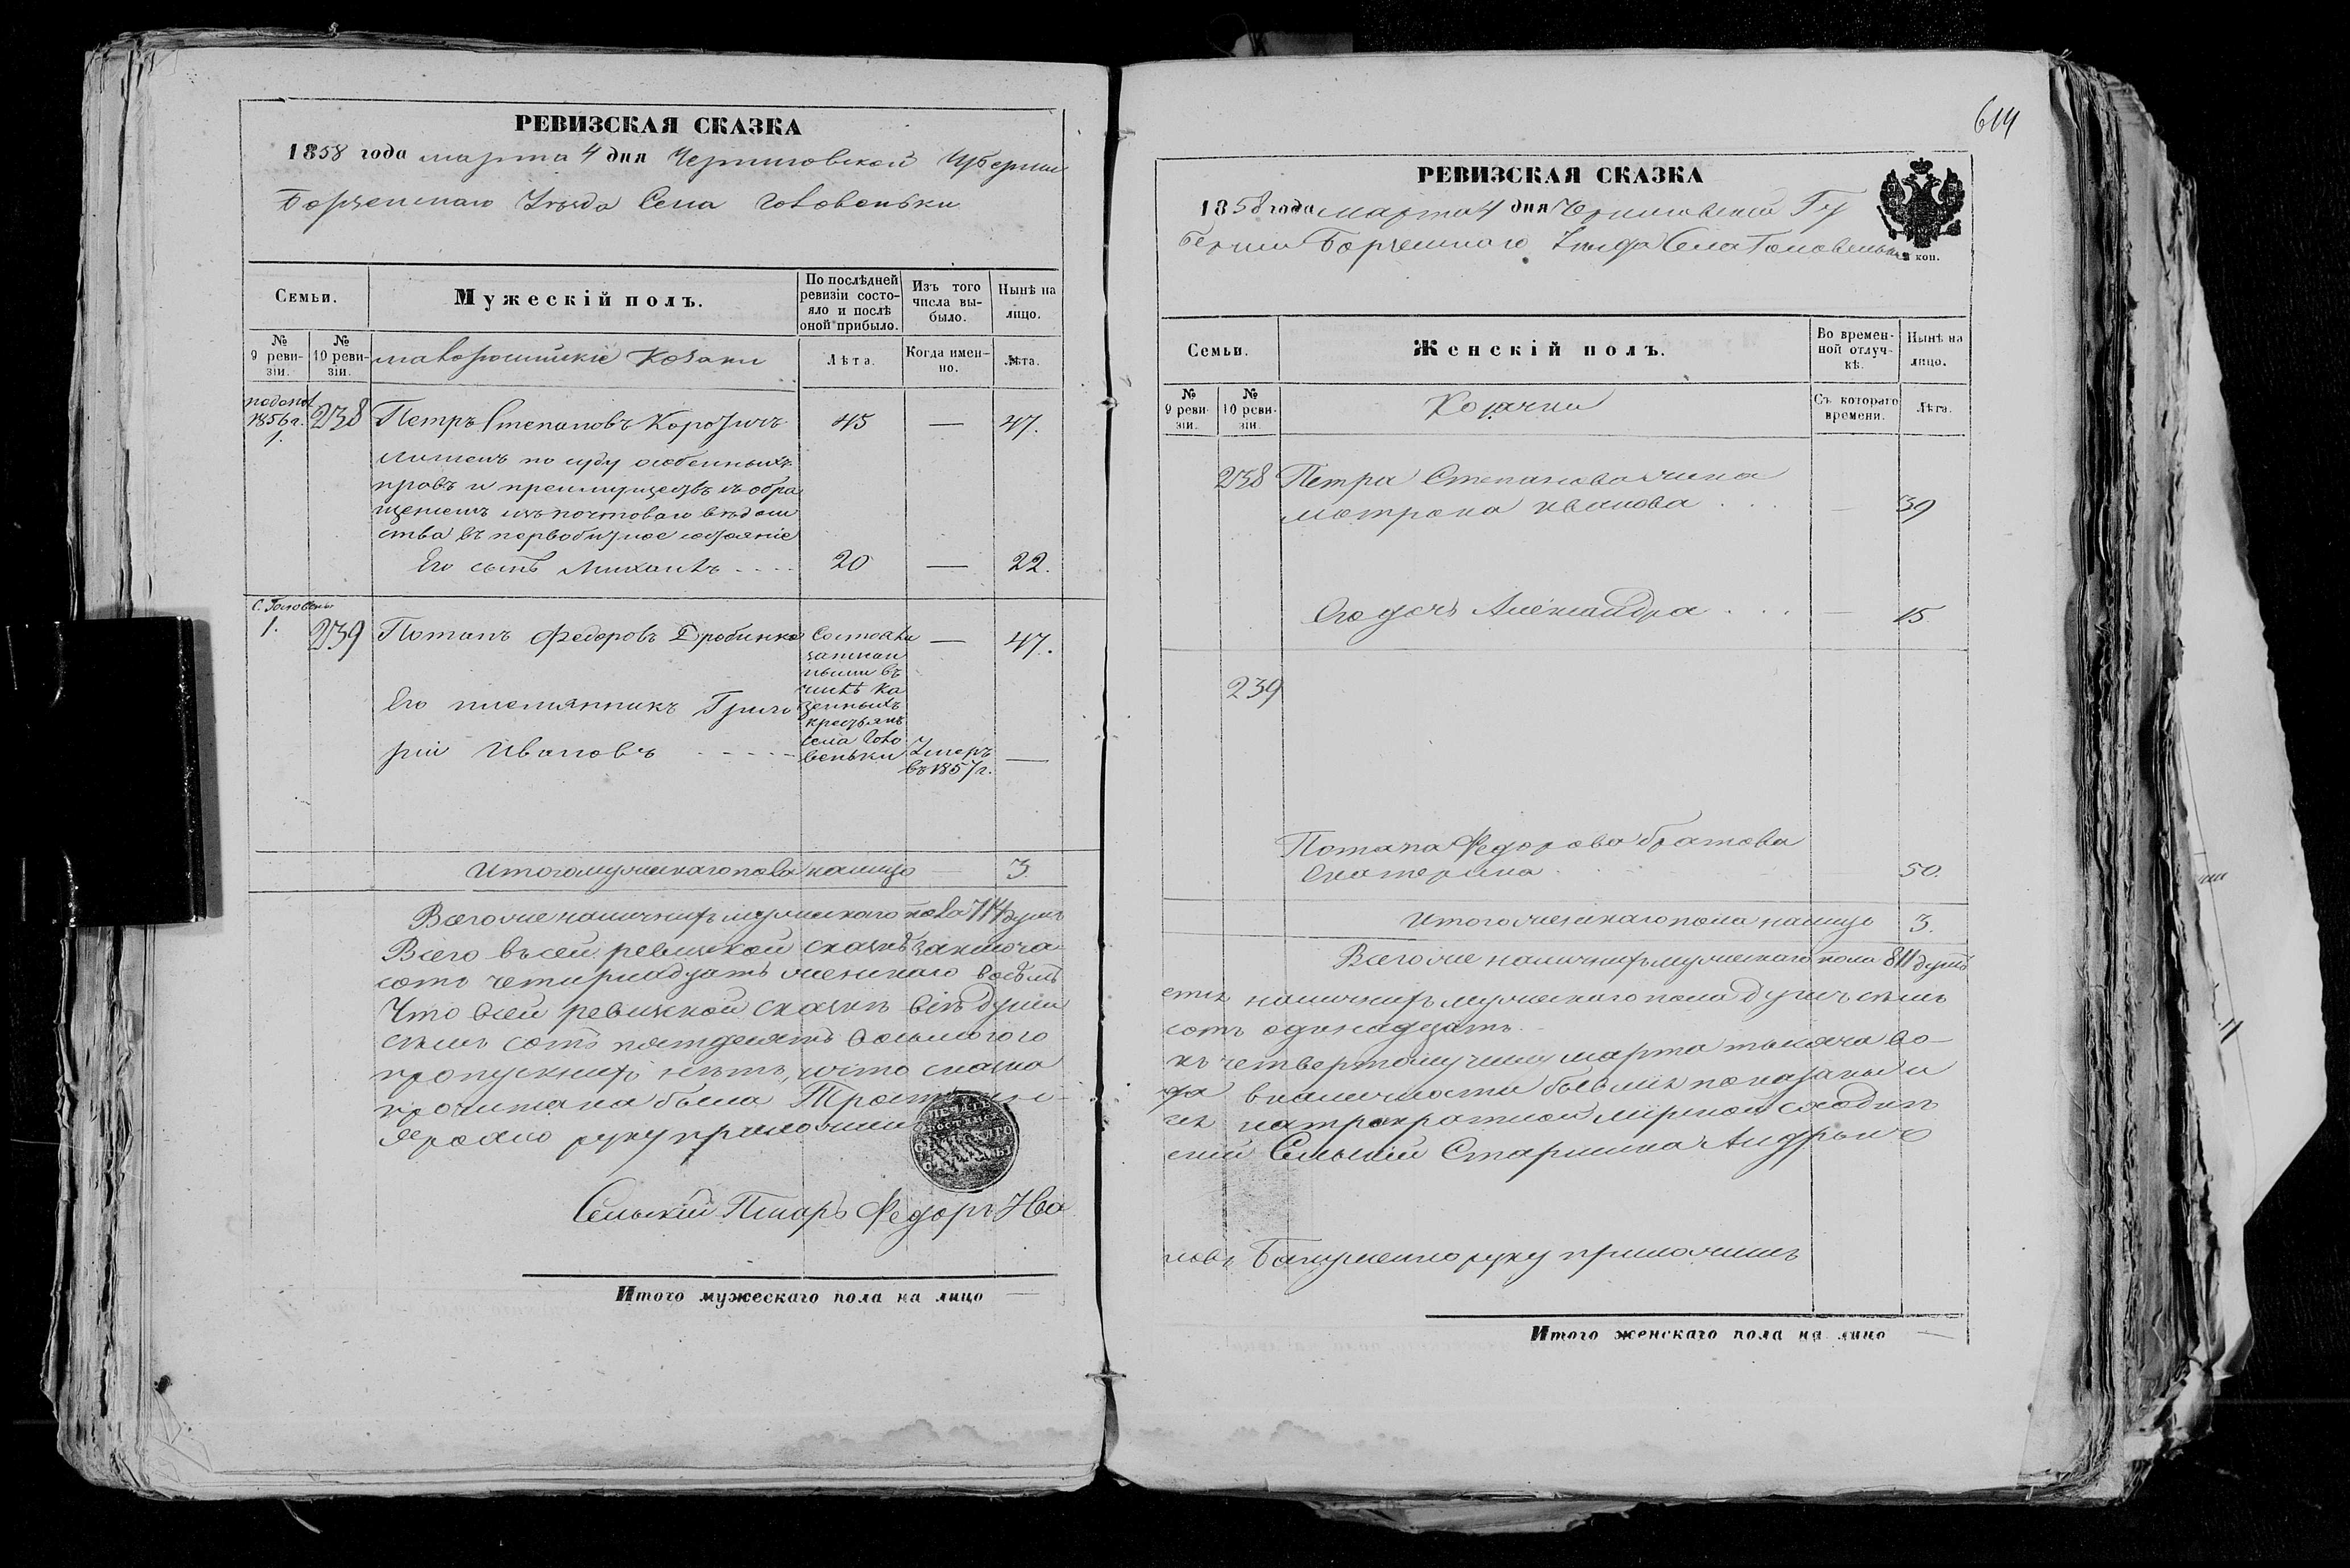 РЕВИЗСКАЯ СКАЗКА
1858 года марта 4 дня Черниговской Губернии
Борзенскаго Уѣзда Села Головеньки
Семьи.
Мужескій полъ.
По послѣдней ревизіи состояло и послѣ оной прибыло.
Изъ того числа выбыло.
Нынѣ на лицо.
№ 9 ревизіи.
№ 10 ревизіи.
малороссійскіе Козаки
Лѣта.
Когда именно.
Лѣта.
1856 г. 1.
238
Петръ Степановъ
45
—
47.
лишенъ по суду особенныхъ
правъ и преимуществъ съ обра
щеніемъ изъ почтоваго вѣдом
ства въ первобытное состояніе
Его сынъ Михаилъ
20
—
22.
С. Головень
1.
239
Потапъ Федоровъ
Состояли
записан
ными въ
числѣ ка
зенныхъ
крестьянъ
села Голо
веньки
—
47.
Его племянникъ Григо
рій Ивановъ
Умеръ
въ 1857 г.
—
Итого мужескаго пола налицо
3.
Всего же наличныхъ мужескаго пола 714 душъ
Всего въ сей ревизской сказкѣ заключа
сотъ четырнадцать женскаго восемь
Что въ сей ревизской сказкѣ всѣ души
семь сотъ пятдесятъ восьмого го
пропускныхъ нѣтъ, и что сказка
прочитана была
руку приложилъ
Сельскій Писарь Федоръ Ива
Итого мужескаго пола на лицо —
614
РЕВИЗСКАЯ СКАЗКА
1858 года марта 4 дня Черниговской Гу
берніи Борзенскаго Уѣзда Села Головеньки
коп.
Семьи.
Женскій полъ.
Во временной отлучкѣ.
Нынѣ на лицо.
№ 9 ревизіи.
№ 10 ревизіи.
Козачки
Съ котораго времени.
Лѣта.
238
Петра Степанова жена
Матрона Иванова
—
39
Его дочь Александра
—
15
239
Потапа Федорова братова
Екатерина
50.
Итого женскаго пола налицо
3.
Всего же наличныхъ мужескаго пола 811 душъ
ется наличныхъ мужескаго пола душъ семь
сотъ одинадцать.
къ четвертому числу марта тысяча во-
да въ наличности бывшіе показаны и
на трехкратной мірской сходкѣ
Сельскій Старшина
новъ руку приложилъ
Итого женскаго пола на лицо —